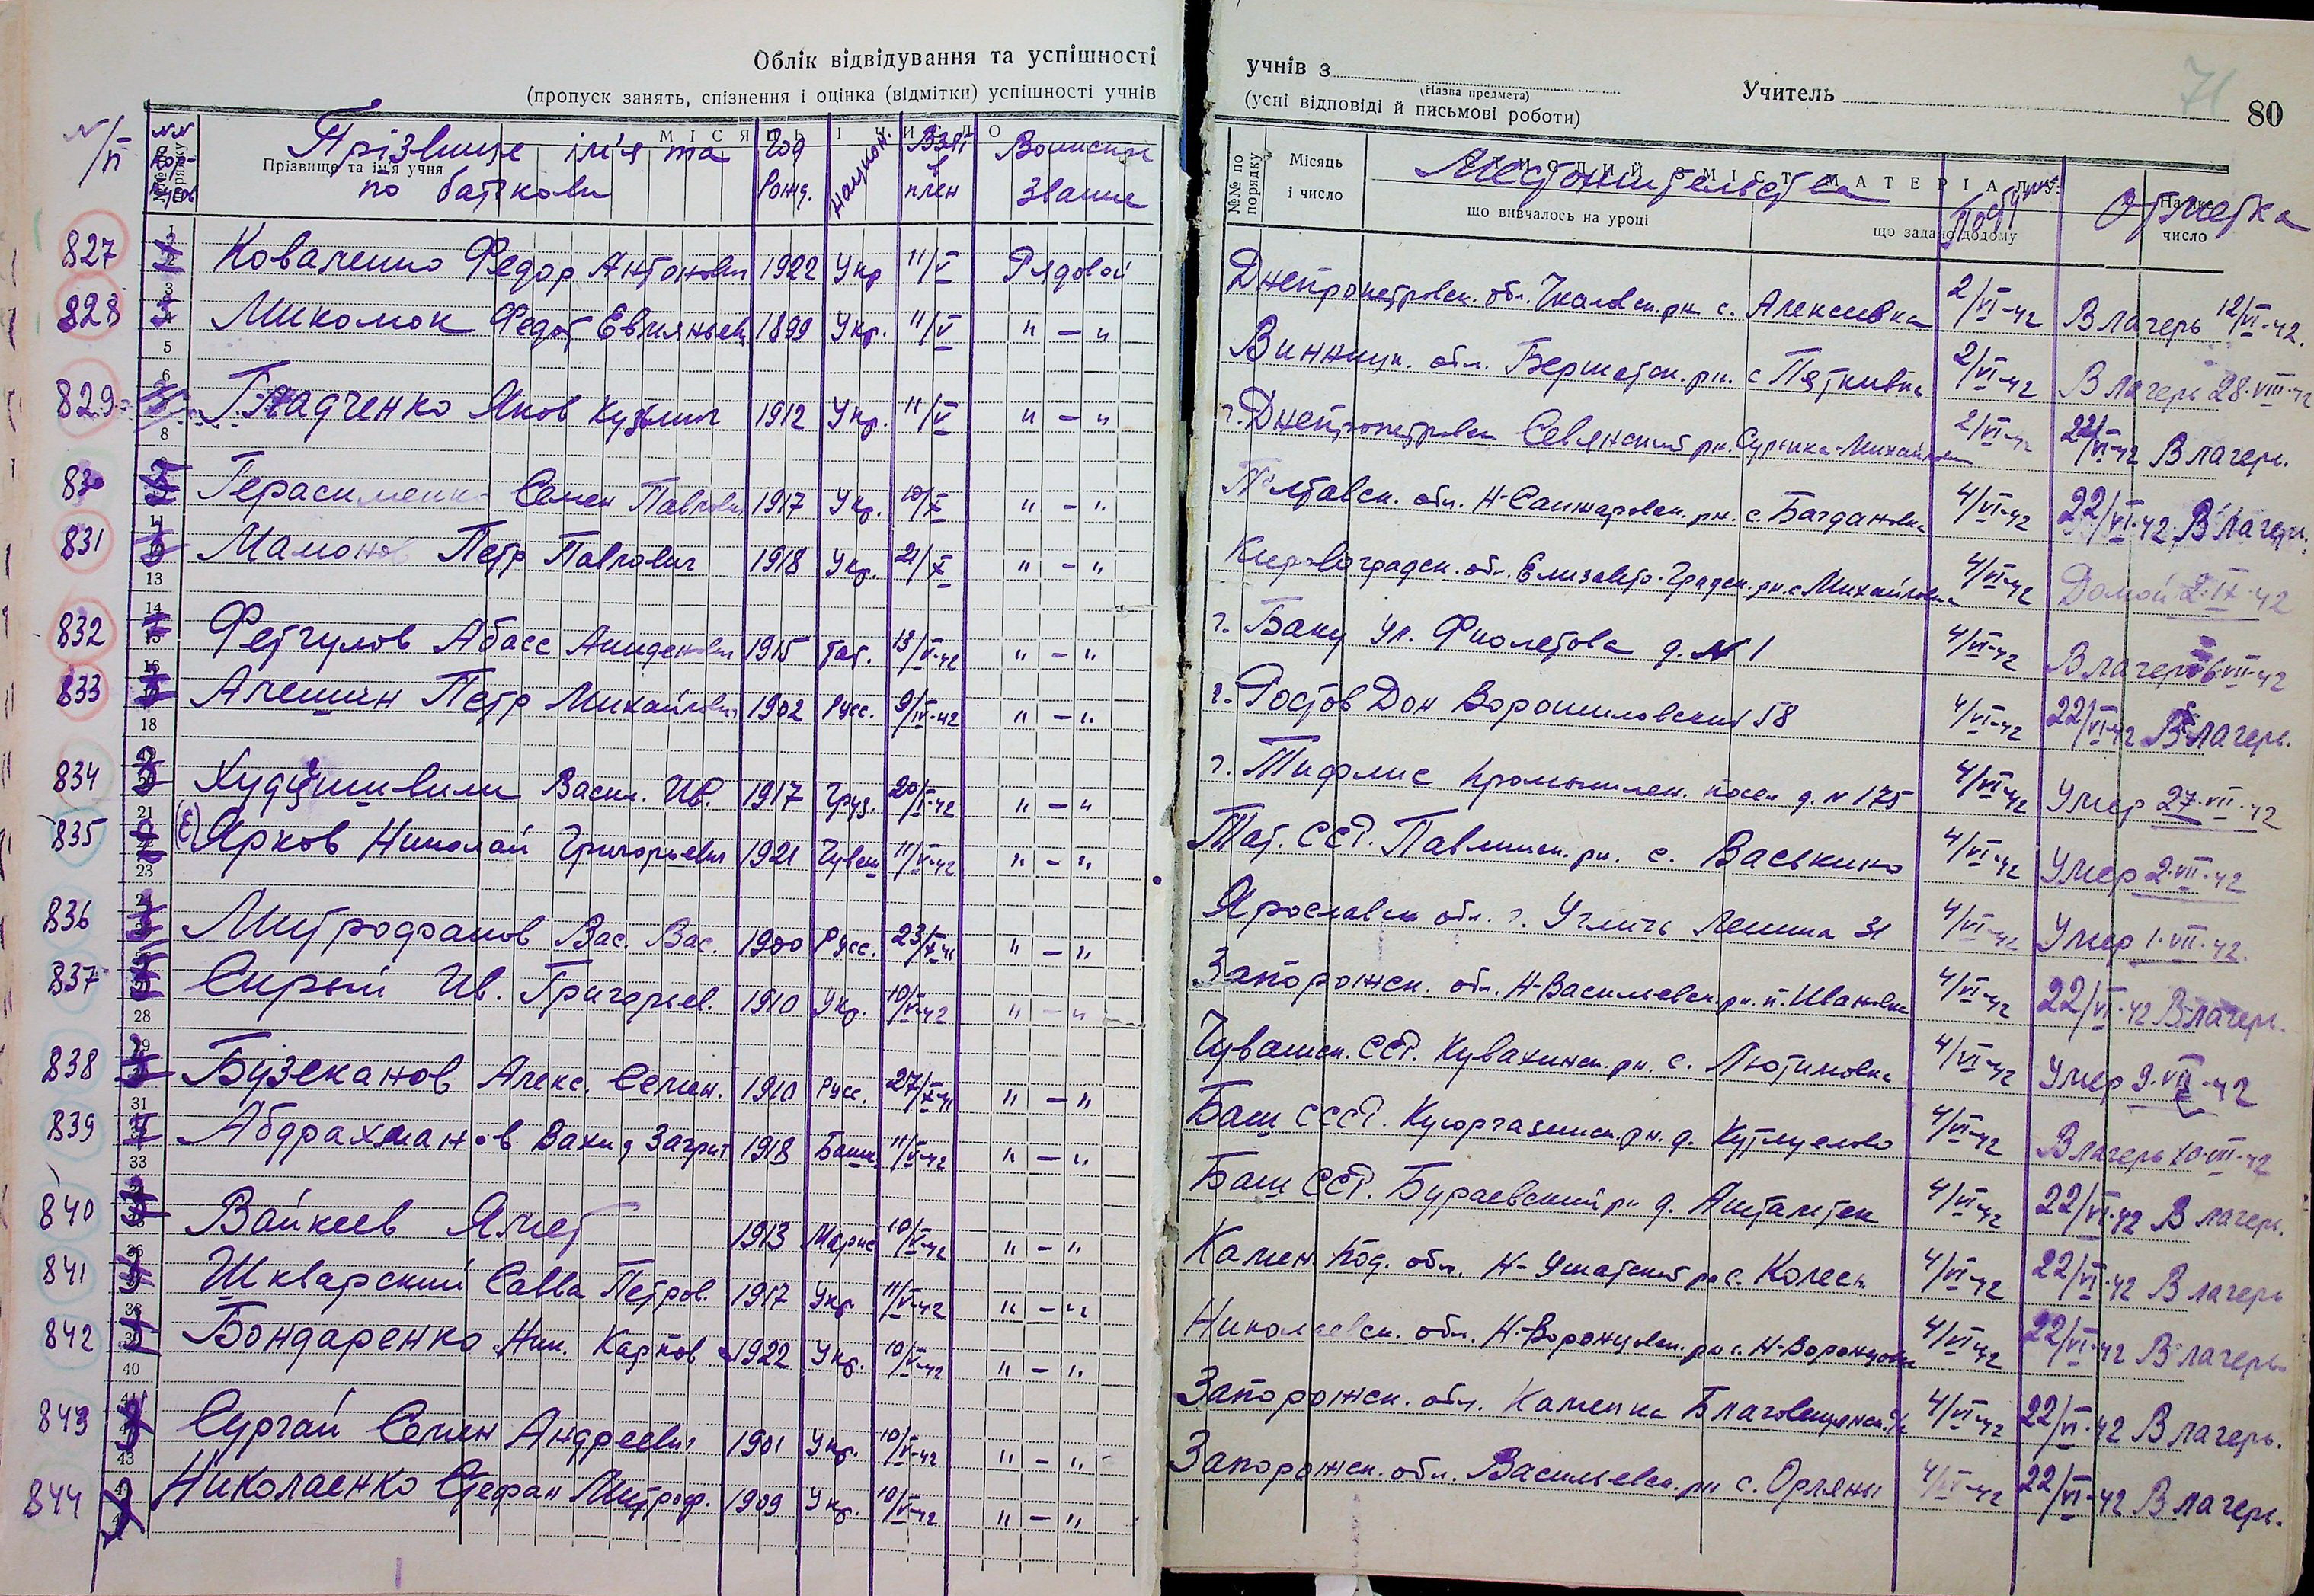 Облік відвідування та успішності
(пропуск занять, спізнення і оцінка (відмітки) успішності учнів
учнів з
(Назва предмета)
Учитель
71
80
(усні відповіді й письмові роботи)
N/п
Прізвище та ім'я учня
Прізвище ім'я та по батькови
Год рожд.
национ.
Взят в плен
Воинское звание
№№ по порядку
Місяць і число
Местожительства
що вивчалось на уроці
що задано додому
Отметка
На яке число
827 Коваленко Федор Антонович 1922 Укр 11/V Рядовой Днепропетровск. обл. Чкаловск. рн с. Алексеевка 2/VI-42 В лагерь 12/VI-42.
828 Микомок Федот 1899 Укр. 11/V " — " Винницк. обл. Бершетск. рн. с Пяткивка 2/VI-42 В лагерь 28·VIII·42
829 Гладченко Яков Кузьмич 1912 Укр. 11/V " — " г. Днепропетровск рн. Сурска-Михайловка 2/VI-42 22/VI-42 В лагерь.
830 Герасименко Семен Павлович 1917 Укр. 10/X " — " Полтавск. обл. Н-Санжаровск. рн. с. Богдановка 4/VI-42 22/VI-42 В лагерь.
831 Мамонов Петр Павлович 1918 Укр. 21/X " — " Кировоградск. обл. Елизавето-Градск. рн. с Михайловка 4/VI-42 Домой 2·IX·42
832 Фетгулов Абасс 1915 тат. 13/V-42 " — " г. Баку ул. Фиолетова д. N 1 4/VI-42 В лагерь 6·VII-42
833 Алешин Петр Михайлович 1902 Русс. 9/IV-42 " — " г. Ростов Дон Ворошиловский 58 4/VI-42 22/VI-42 В лагерь.
834 Васил. Ив. 1917 Груз. 20/V-42 " — " г. Тифлис Промышлен. посел д. N 175 4/VI-42 Умер 27·VII·42
835 (Е) Ярков Николай Григорьевич 1921 Чуваш 11/V-42 " — " Тат. ССР. рн. с. Васькино 4/VI-42 Умер 2·VII·42
836 Митрофанов Вас. Вас. 1900 Русс. 23/X-41 " — " Ярославск обл. г. Углич Ленина 31 4/VI-42 Умер 1·VII·42.
837 Сирый Ив. Григорьев. 1910 Укр. 10/V-42 " — " Запорожск. обл. Н-Васильевск. рн. п. Ивановка 4/VI-42 22/VI-42 В лагерь.
838 Бузеканов Алекс. Семен. 1910 Русс. 27/X-41 " — " Чувашск. ССР. рн. с. Лютимовка 4/VI-42 Умер 9·VII·42
839 Абдрахманов Вахид Загрит 1918 Башк. 11/V-42 " — " Баш СССР. рн. д. Кутлуелово 4/VI-42 В лагерь 10·VIII·42
840 Вайкеев Ямет 1913 Марис 10/V-42 " — " Баш ССР. Бураевский рн д. 4/VI-42 22/VI-42 В лагерь.
841 Шкварский Савва Петров. 1917 Укр. 11/V-42 " — " Камен. Под. обл. Н-Ушатский рн с. 4/VI-42 22/VI-42 В лагерь
842 Бондаренко Ник. Карпов. 1922 Укр. 10/V-42 " — " Николаевск. обл. Н-Воронцовск. рн с. Н-Воронцовка 4/VI-42 22/VI-42 В лагерь
843 Сургай Семен Андреевич 1901 Укр. 10/V-42 " — " Запорожск. обл. Каменка 4/VI-42 22/VI-42 В лагерь.
844 Николаенко Стефан Митроф. 1909 Укр. 10/V-42 " — " Запорожск. обл. Васильевск. рн с. Орляны 4/VI-42 22/VI-42 В лагерь.